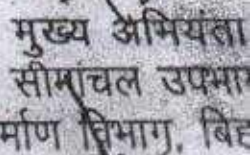 मुख्य अभियंता
सीमांचल उपभाग
र्माण विभाग, बिह